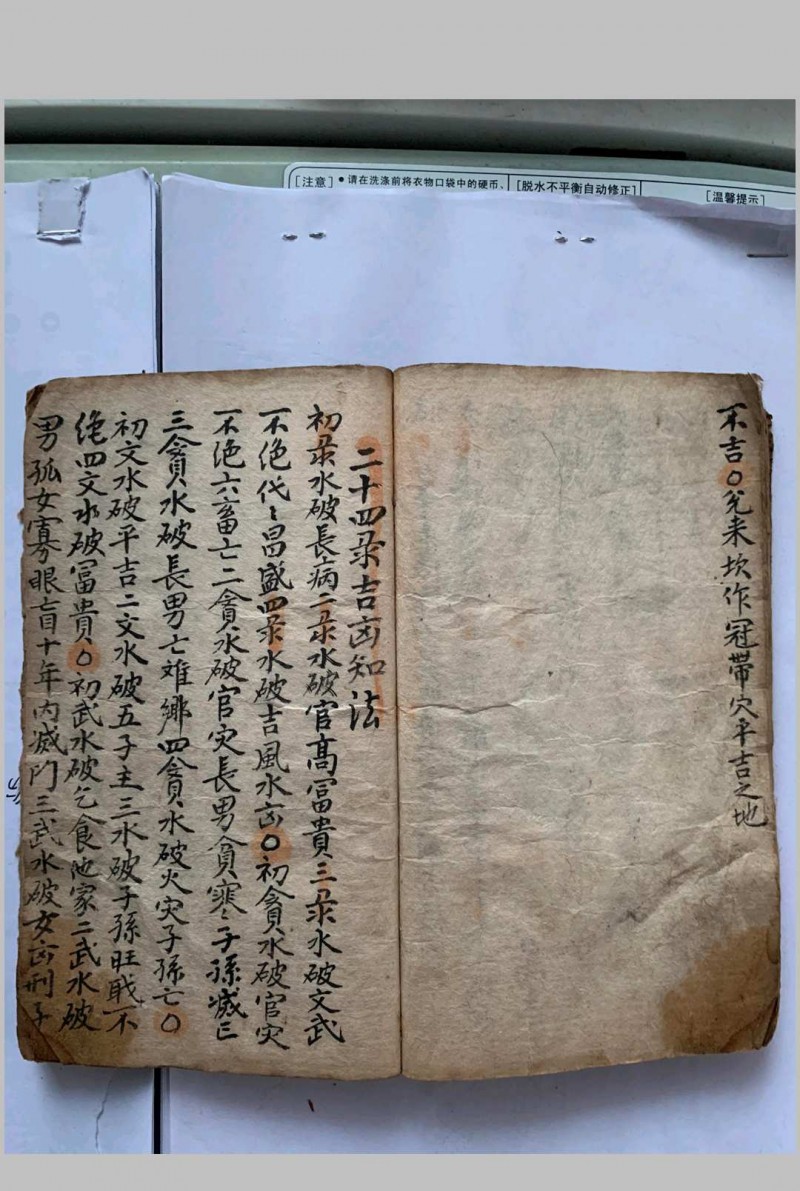 [注意]●请在洗涤前将衣物口袋中的硬币、
[脱水不平衡自动修正]
[温馨提示]
不吉○兊来坎作冠帶穴平吉之地
二十四彔吉凶知法
初彔水破長病二彔水破官高冨貴三彔水破文武
不绝代〻昌盛四彔水破吉風水凶○初貪水破官灾
不绝六畜亡二貪水破官灾長男貧寒〻子孫滅亡
三貪水破長男亡难鄉四貪水破火灾子孫亡○
初文水破平吉二文水破五子主三水破子孫旺戝不
绝四文水破冨貴○初武水破乞食他家二武水破
男孤女寡眼盲十年内滅门三武水破女凶刑子